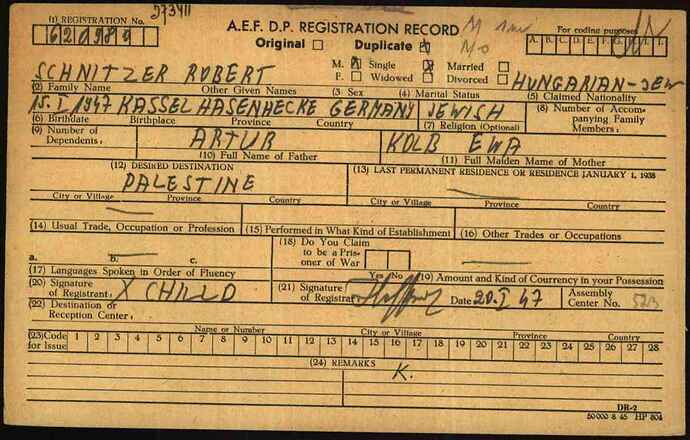 273411
(1) REGISTRATION NO.
A.E.F. D.P. REGISTRATION RECORD
For coding purposes
Original Duplicate
A. B. C. D. E. F. G. H. I. J.
M. Single Married
F. Widowed Divorced
SCHNITZER ROBERT HUNGARIAN-JEW
(2) Family Name Other Given Names (3) Sex (4) Marital Status (5) Claimed Nationality
15. I 1947 KASSEL HASENHECKE GERMANY JEWISH
(6) Birthdate Birthplace Province Country (7) Religion (Optional) (8) Number of Accompanying Family Members:
(9) Number of Dependents: ARTUR KOLB EWA
(10) Full Name of Father (11) Full Maiden Mame of Mother
(12) DESIRED DESTINATION (13) LAST PERMANENT RESIDENCE OR RESIDENCE JANUARY 1, 1938
PALESTINE
City or Village Province Country City or Village Province Country
(14) Usual Trade, Occupation or Profession (15) Performed in What Kind of Establishment (16) Other Trades or Occupations
(18) Do You Claim to be a Prisoner of War
a. b. c.
Yes No
(17) Languages Spoken in Order of Fluency (19) Amount and Kind of Courrency in your Possession
(20) Signature of Registrant: X CHILD (21) Signature of Registrar: Date 20.I 47 Assembly Center No. 523
(22) Destination or Reception Center:
Name or Number City or Village Province Country
(23) Code for Issue 1 2 3 4 5 6 7 8 9 10 11 12 13 14 15 16 17 18 19 20 21 22 23 24 25 26 27 28
(24) REMARKS
K.
DR-2
50 000 8 45 HP 804